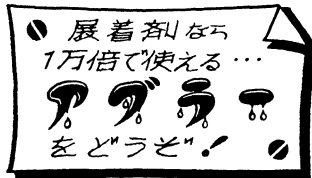 展着剤なら
1万倍で使える…
アブラー
をどうぞ!